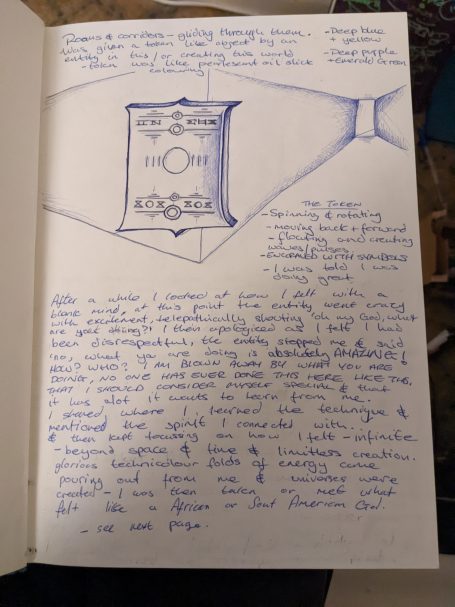 Rooms & corridors - gliding through them.
Was given a token like object by an
entity in this / or creating this world
- token was like pearlescent oil slick
colouring
- Deep blue
+ yellow
- Deep purple
+ Emerald Green
THE TOKEN
- Spinning & rotating
- moving back + forward
- floating and creating
waves/pulses
- ENGRAVED WITH SYMBOLS
- I was told I was
doing great
After a while I looked at how I felt with a
blank mind, at this point the entity went crazy
with excitement, telepathically shouting 'oh my God, what
are you doing?! I then apologised as I felt I had
been disrespectful, the entity stopped me & said
'no, what you are doing is absolutely AMAZING!
HOW? WHO? I AM BLOWN AWAY BY WHAT YOU ARE
DOING, NO ONE HAS EVER DONE THIS HERE LIKE THIS,
THAT I SHOULD CONSIDER MYSELF SPECIAL & that
it has alot it wants to learn from me.
I shared where I learned the technique &
mentioned the spirit I connected with..
& then kept focussing on how I felt - infinite
- beyond space & time & limitless creation.
glorious technicolour folds of energy came
pouring out from me & universes were
created - I was then taken or met what
felt like a African or Sout American God.
- see next page.